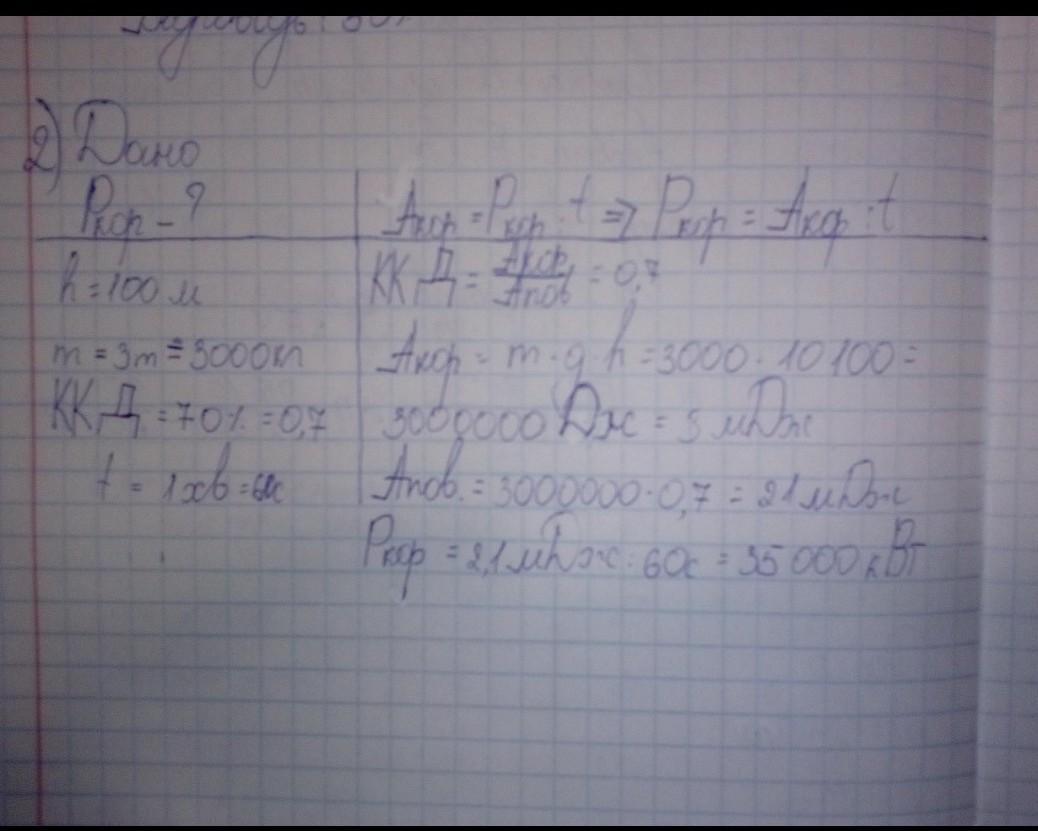 2) Дано
Pкор - ?
h = 100 м
m = 3т = 3000кг
ККД = 70% = 0,7
t = 1хв = 60с
Aкор = Pкор · t => Pкор = Aкор : t
ККД = Aкор / Aпов = 0,7
Aкор = m · g · h = 3000 · 10 100 =
3000000 Дж = 3 мДж
Aпов. = 3000000 · 0,7 = 2,1 мДж
Pкор = 2,1 мДж : 60с = 35 000 кВт